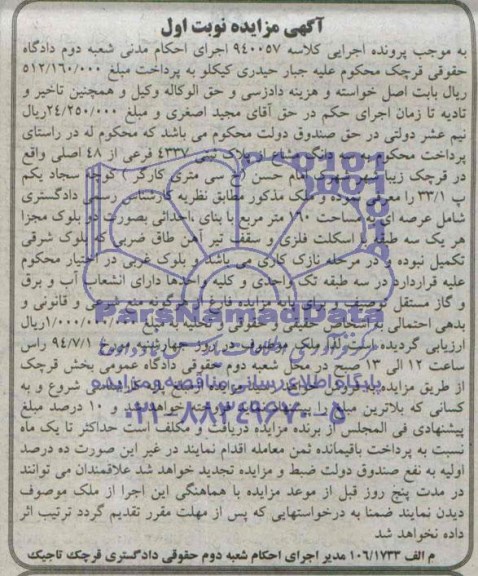 آگهی مزایده نوبت اول
به موجب پرونده اجرایی کلاسه ۹۴۰۰۵۷ اجرای احکام مدنی شعبه دوم دادگاه
حقوقی قرچک محکوم علیه جبار حیدری کیکلو به پرداخت مبلغ ۵۱۲/۱۶۰/۰۰۰
ریال بابت اصل خواسته و هزینه دادرسی و حق الوکاله وکیل و همچنین تاخیر و
تادیه تا زمان اجرای حکم در حق آقای مجید اصغری و مبلغ ۲۴/۲۵۰/۰۰۰ریال
نیم عشر دولتی در حق صندوق دولت محکوم می باشد که محکوم له در راستای
پرداخت محکوم دانگ پلاک ثبتی ۴۳۳۷ فرعی از ۴۸ اصلی واقع
در قرچک زیبا شهر امام حسن خ سی متری کارگر کوچه سجاد یکم
پ ۳۳/۱ را معرفی نموده و ملک مذکور مطابق نظریه کارشناس رسمی دادگستری
شامل عرصه ای به مساحت ۱۶۰ متر مربع با بنای احداثی بصورت دو بلوک مجزا
هر یک سه طبقه با اسکلت فلزی و سقف تیر آهن طاق ضربی که بلوک شرقی
تکمیل نبوده و در مرحله نازک کاری می باشد و بلوک غربی در اختیار محکوم
علیه قراردارد در سه طبقه تک واحدی و کلیه واحدها دارای انشعاب آب و برق
و گاز مستقل توصیف و برای پایه مزایده فارغ از هرگونه منع شرعی و قانونی و
بدهی احتمالی به اشخاص حقیقی و حقوقی و تخلیه به مبلغ ریال
ارزیابی گردیده است لذا ملک موصوف در روز چهارشنبه مورخ ۹۴/۷/۱ راس
ساعت ۱۲ الی ۱۳ صبح در محل شعبه دوم حقوقی دادگاه عمومی بخش قرچک
از طریق مزایده به فروش خواهد رسید مزایده از مبلغ شروع و به
کسانی که بالاترین مبلغ را پیشنهاد نماید فروخته خواهد شد و ۱۰ درصد مبلغ
پیشنهادی فی المجلس از برنده مزایده دریافت و مکلف است حداکثر تا یک ماه
نسبت به پرداخت باقیمانده ثمن معامله اقدام نمایند در غیر این صورت ده درصد
اولیه به نفع صندوق دولت ضبط و مزایده تجدید خواهد شد علاقمندان می توانند
در مدت پنج روز قبل از موعد مزایده با هماهنگی این اجرا از ملک موصوف
دیدن نمایند ضمنا به درخواستهایی که پس از مهلت مقرر تقدیم گردد ترتیب اثر
داده نخواهد شد
م الف ۱۰۶/۱۷۳۳ مدیر اجرای احکام شعبه دوم حقوقی دادگستری قرچک تاجیک
ParsNamadData
پایگاه اطلاع رسانی مناقصه و مزایده
۰۲۱-۸۸۳۴۹۶۷۰-۵